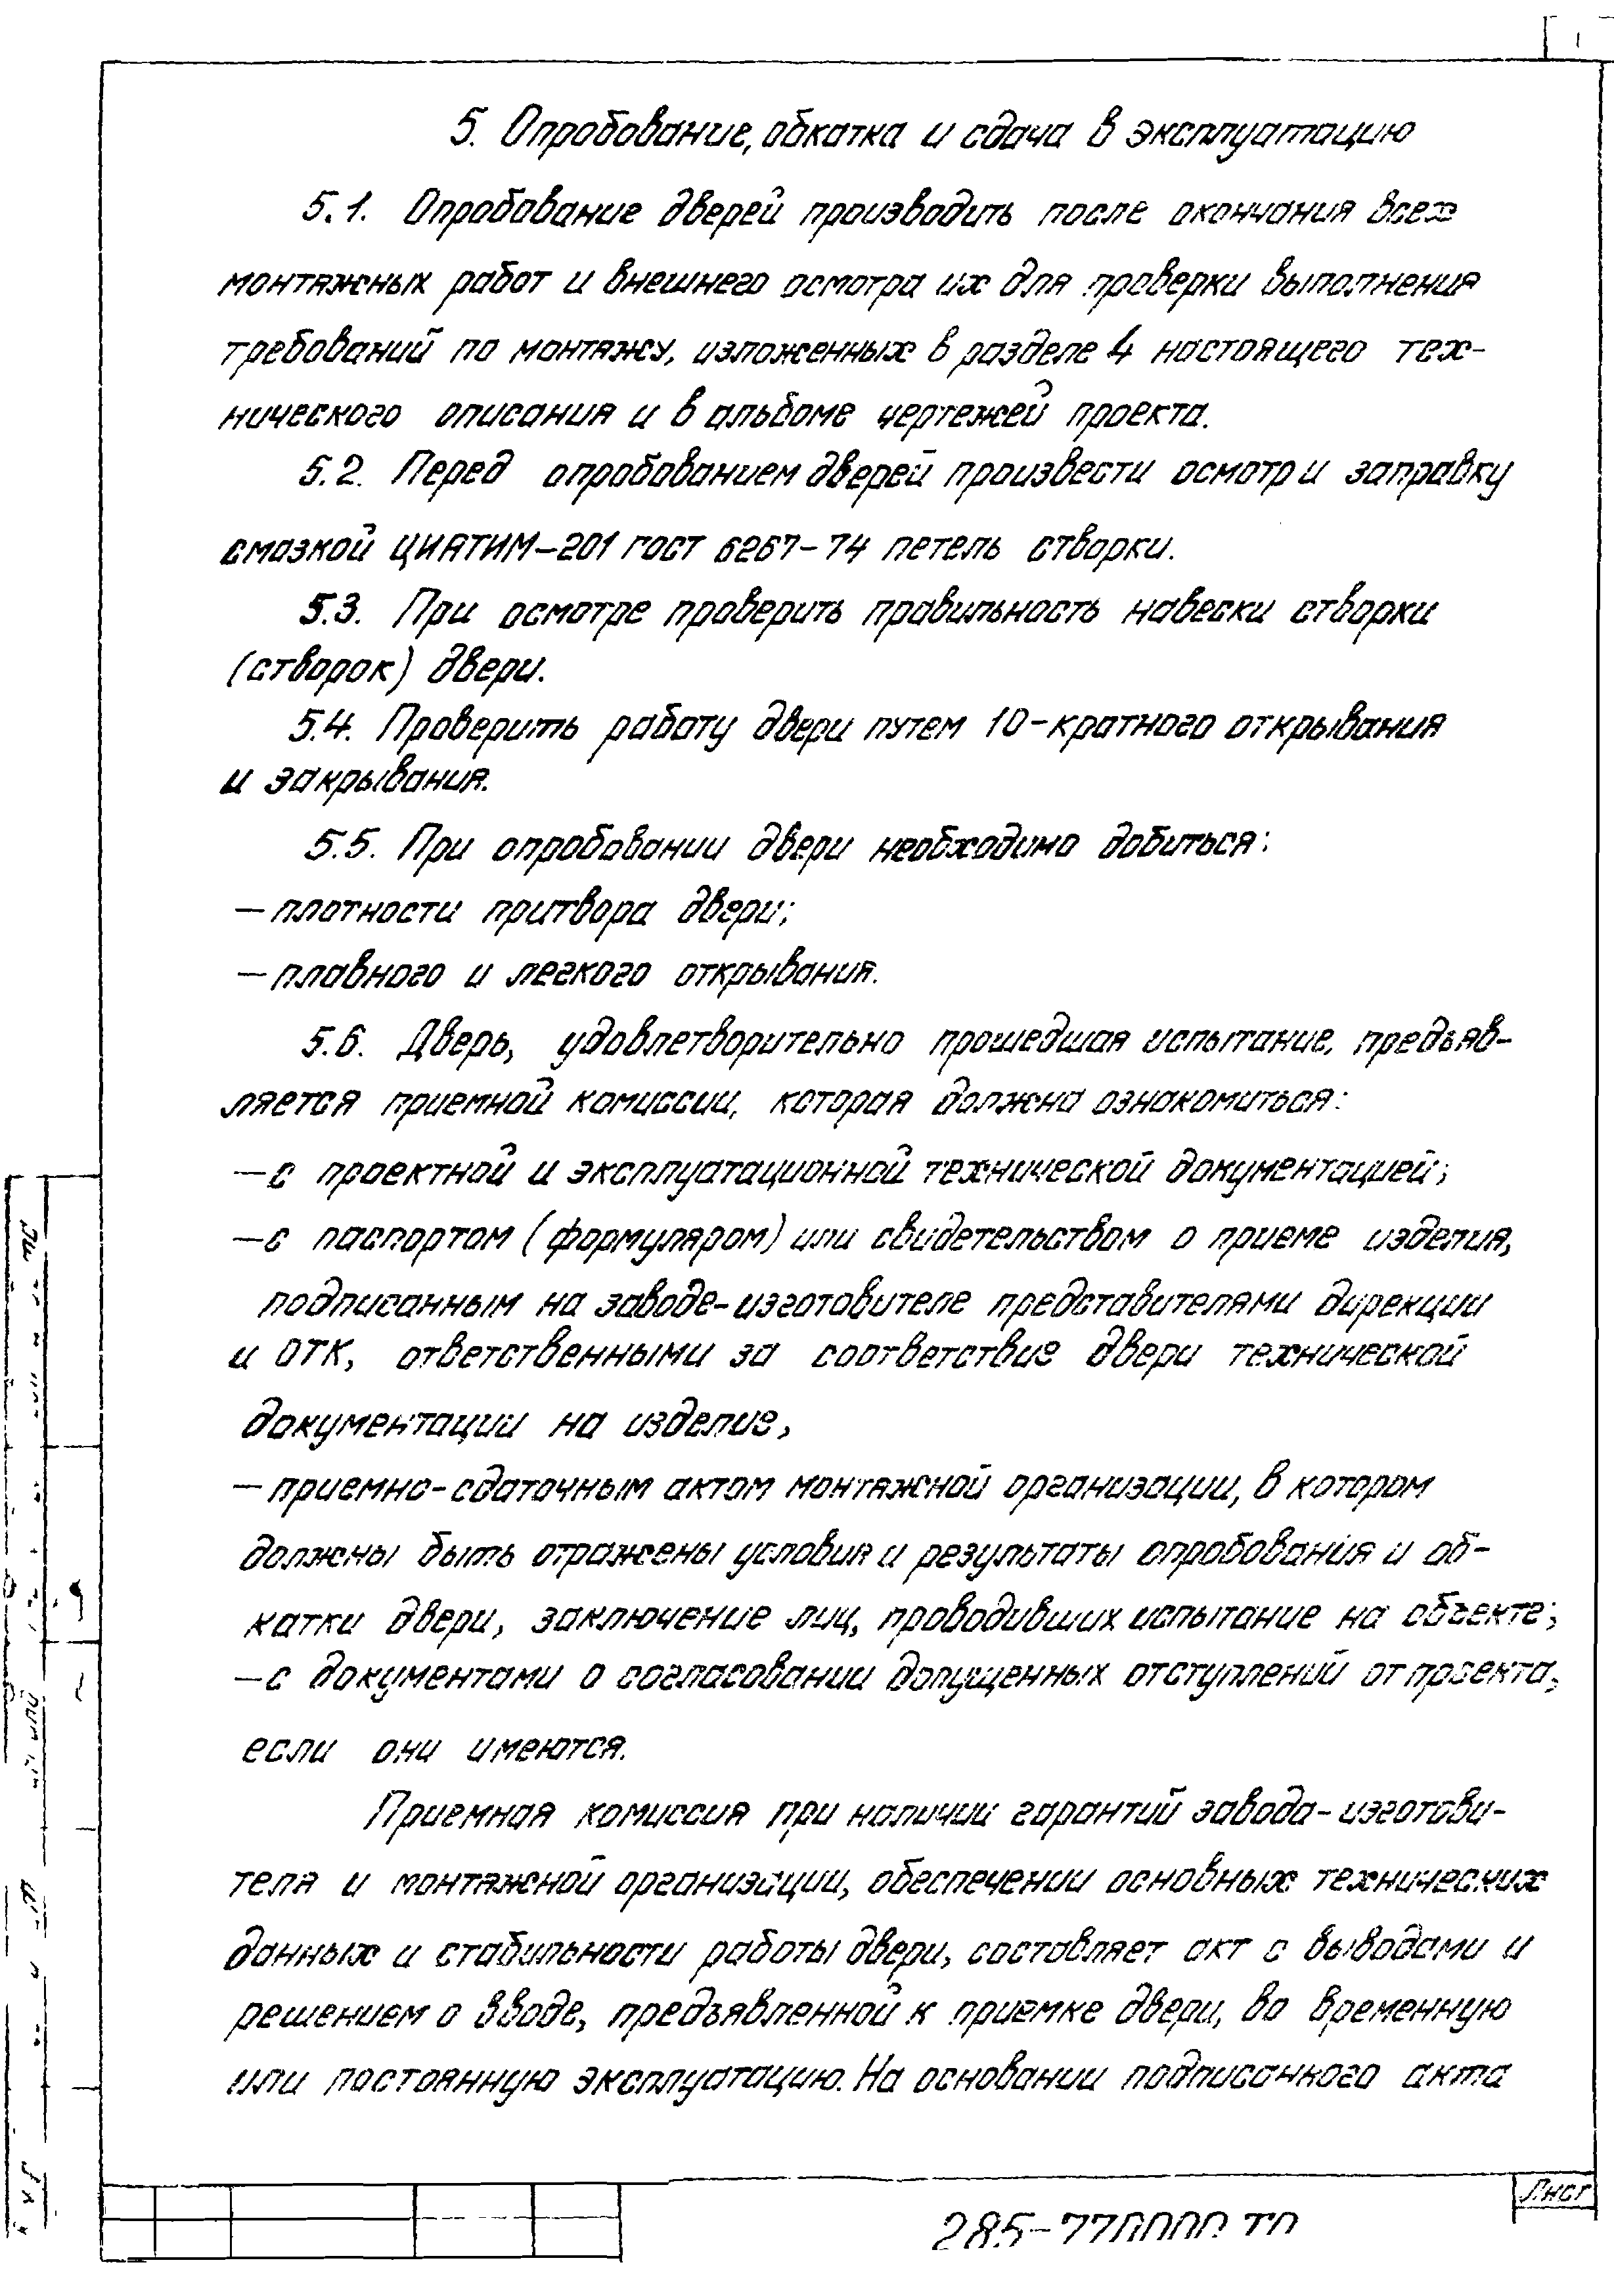 5. Опробование, обкатка и сдача в эксплуатацию
5.1. Опробование дверей производить после окончания всех
монтяжных работ и внешнего осмотра их для проверки выполнения
требований по монтяжу, изложенных в разделе 4 настоящего тех-
нического описания и в альбоме чертежей проекта.
5.2. Перед опробованием дверей произвести осмотр и заправку
смазкой ЦИАТИМ-201 ГОСТ 6267-74 петель створки.
5.3. При осмотре проверить правильность навески створки
(створок) двери.
5.4. Проверить работу двери путем 10-кратного открывания
и закрывания.
5.5. При опробовании двери необходимо добиться:
— плотности притвора двери;
— плавного и легкого открывания.
5.6. Дверь, удовлетворительно прошедшая испытание, предъяв-
ляется приемной комиссии, которая должна ознакомиться:
— с проектной и эксплуатационной технической документацией;
— с паспортом (формуляром) или свидетельством о приеме изделия,
подписанным на заводе-изготовителе представителями дирекции
и ОТК, ответственными за соответствие двери технической
документации на изделие,
— приемно-сдаточным актом монтяжной организации, в котором
должны быть отражены условия и результаты опробования и об-
катки двери, заключение лиц, проводивших испытание на объекте;
— с документами о согласовании допущенных отступлений от проекта,
если они имеются.
Приемная комиссия при наличии гарантий завода-изготови-
теля и монтяжной организации, обеспечении основных технических
данных и стабильности работы двери, составляет акт с выводами и
решением о вводе, предъявленной к приемке двери, во временную
или постоянную эксплуатацию. На основании подписанного акта
Лист
285-770000 ТО